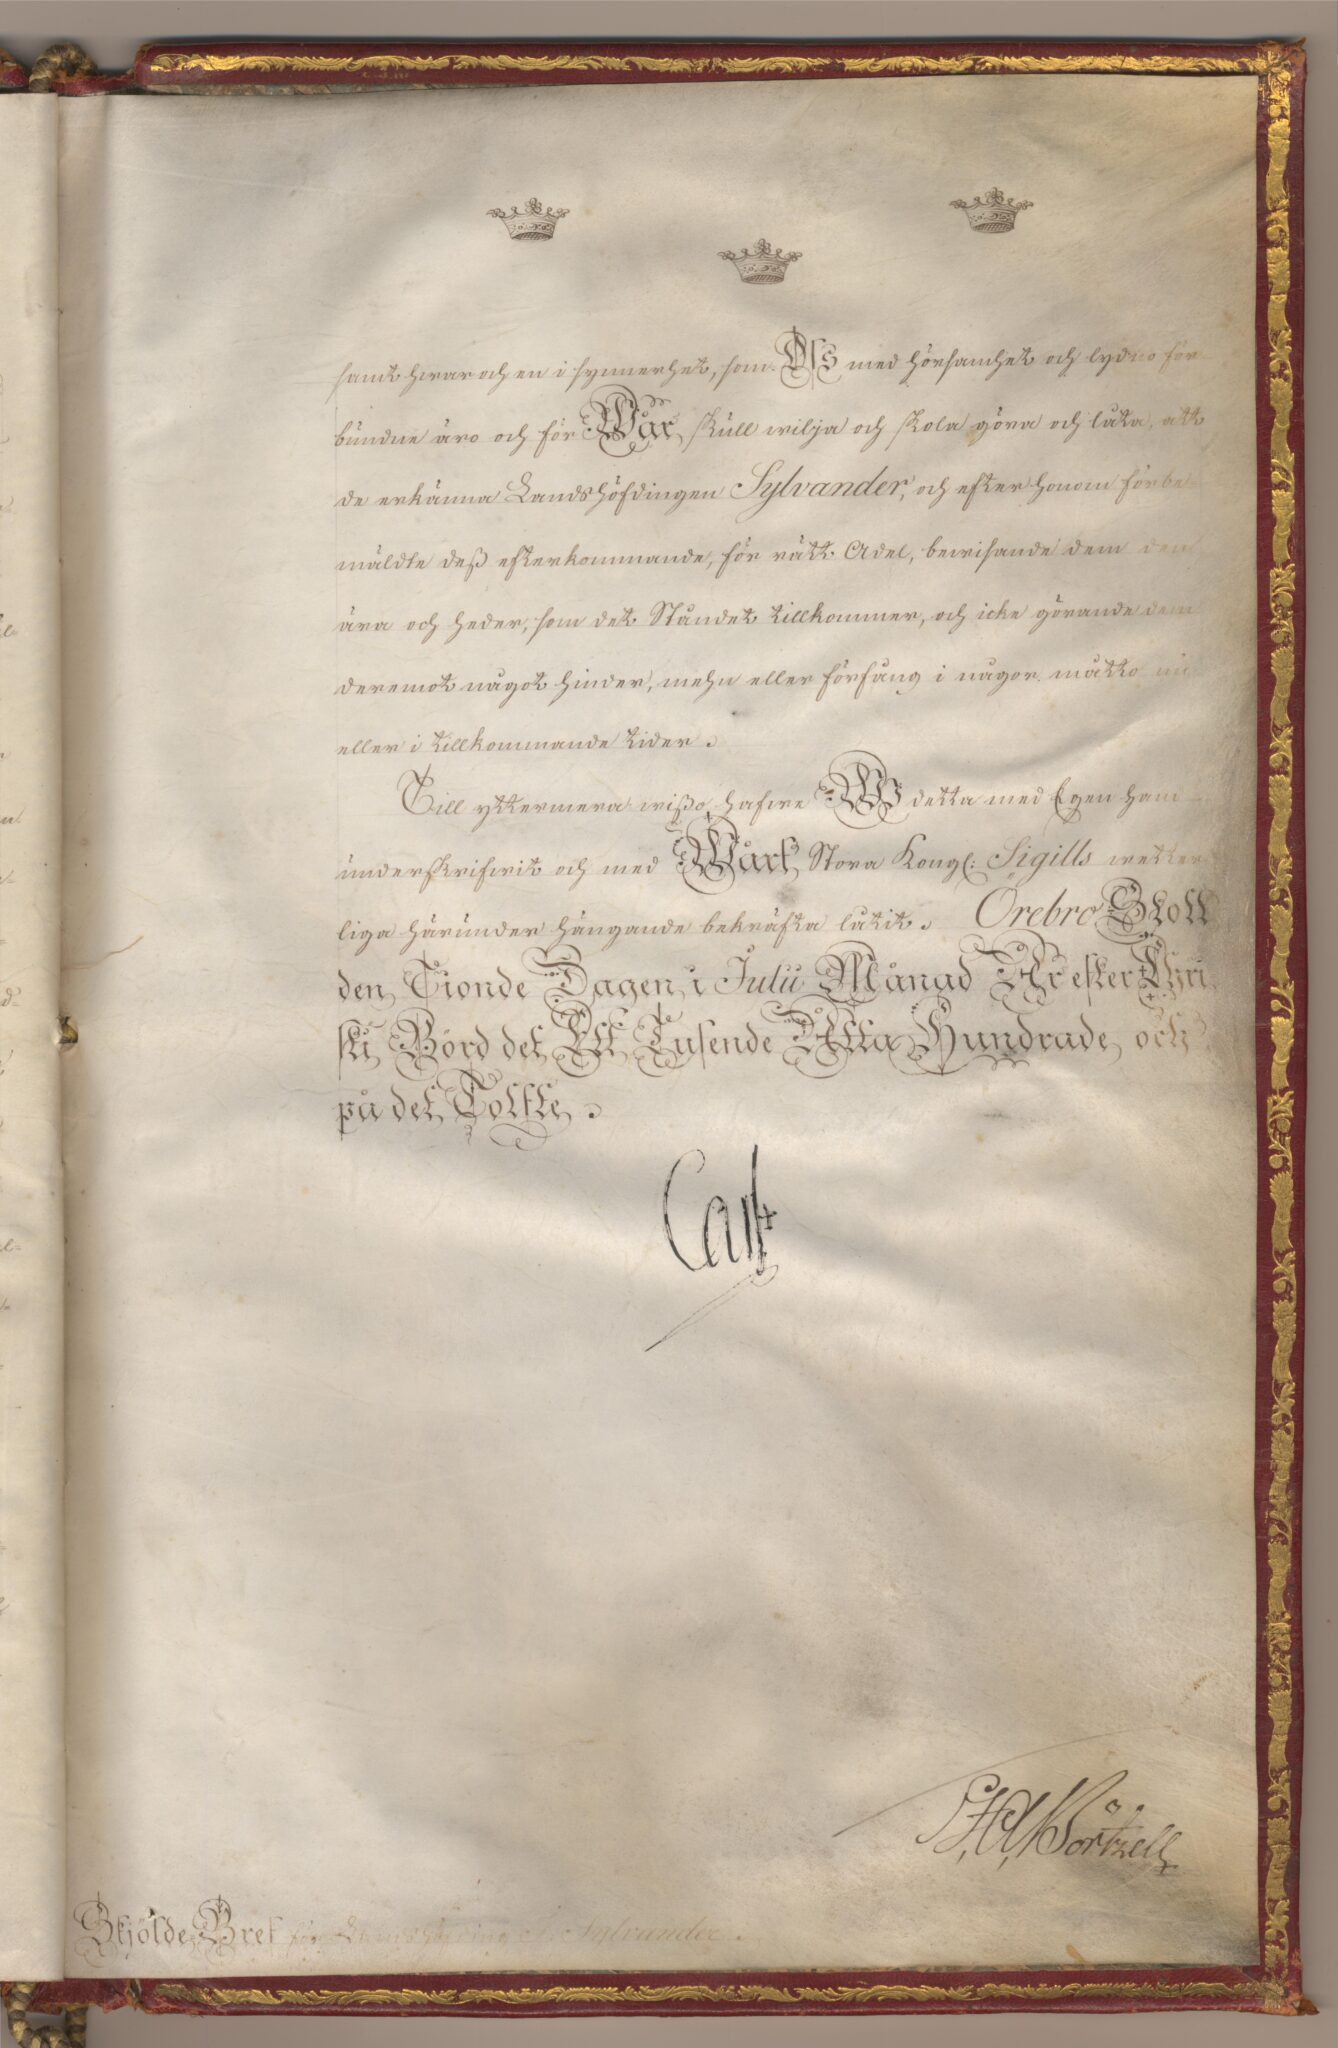 samt hwar och en i synnerhet, som Oss med hörsamhet och lydno för
bundne äro och för Wår skull wilja och skola göra och låta, att
de erkänna Landshöfdingen Sylvander, och efter honom förbe-
mäldte deß efterkommande, för rätt Adel, bewisande dem den
ära och heder, som det Ståndet tillkommer, och icke görande dem
deremot något hinder, mehn eller förfång i någor måtto nu
eller i tillkommande tider.
Till yttermera wißo hafwe Wi detta med Egen hand
underskrifwit och med Wårt Stora Kongl: Sigills wetter
liga härunder hängande bekräfta låtit. Örebro Slott
den Tionde Dagen i Julii Månad År efter Chri
sti Börd det Ett Tusende Åtta Hundrade och
på det Tolfte.
Carl
Skjölde Bref för Landshöfding Sylvander.